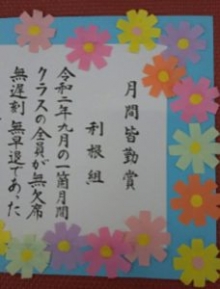 月間皆勤賞
利根組
令和二年九月の一箇月間
クラスの全員が無欠席
無遅刻無早退であった